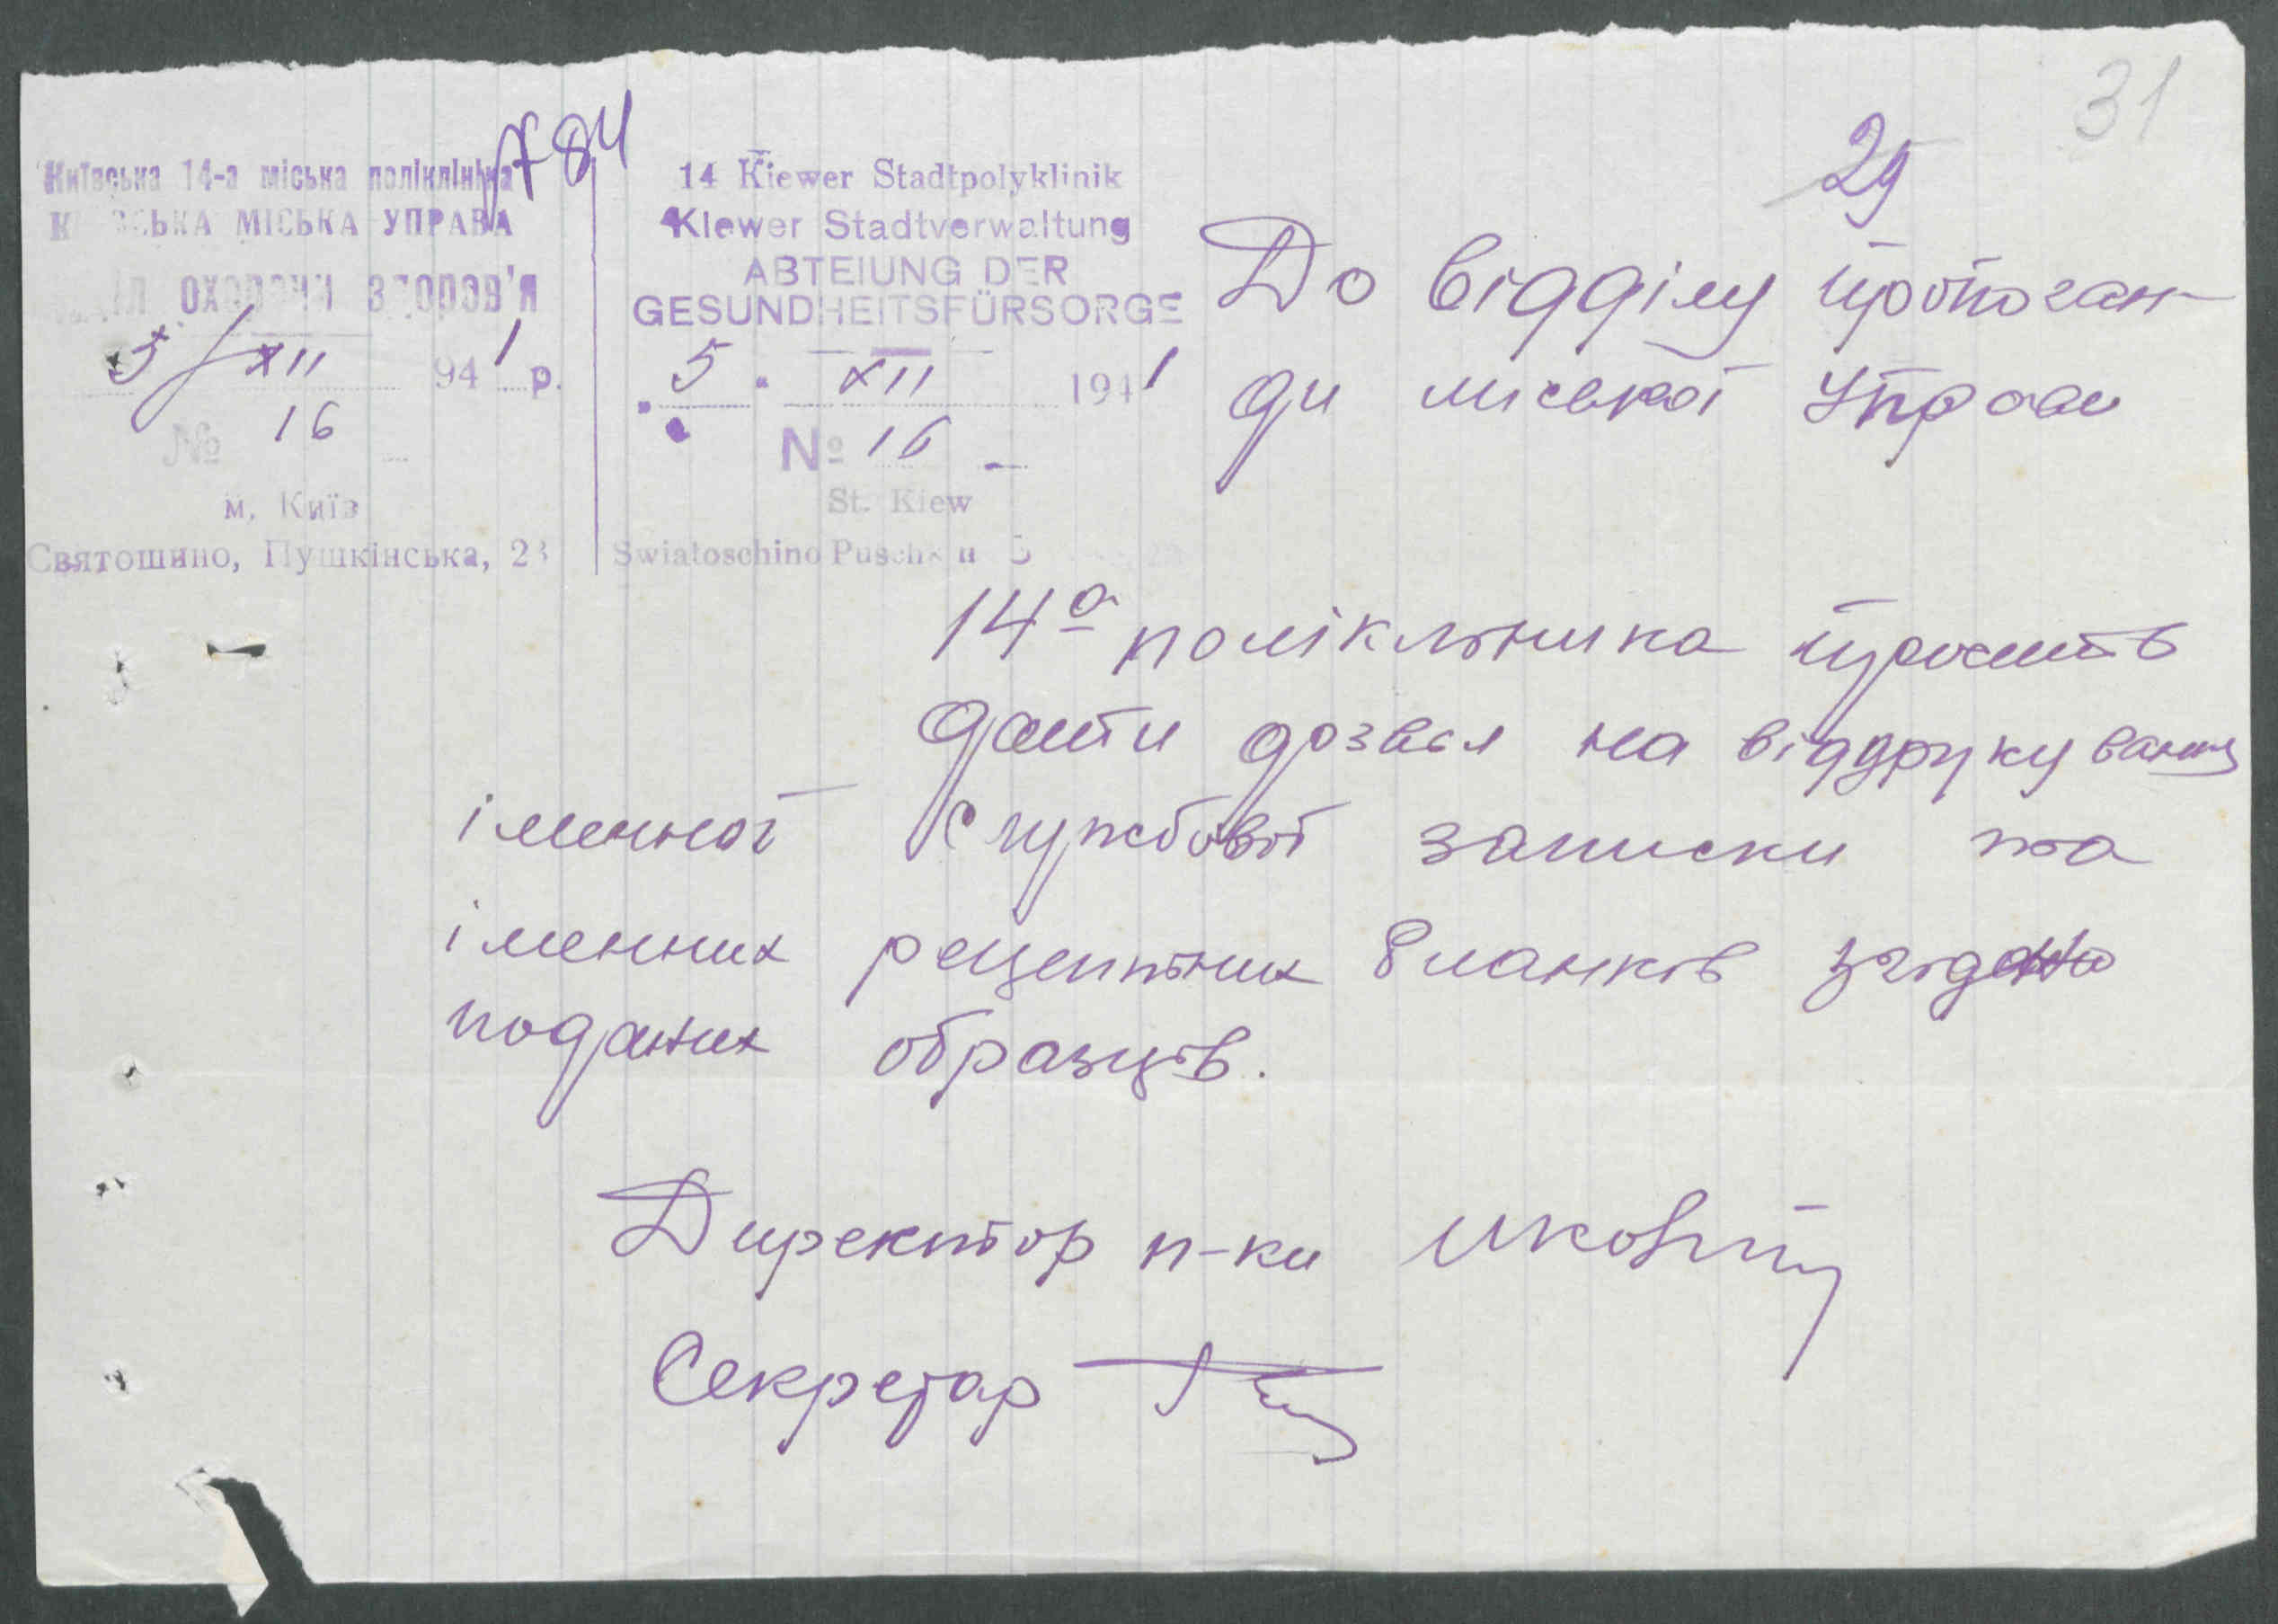 31
29
784
Київська 14-а міська поліклініка
КИЇВСЬКА МІСЬКА УПРАВА
відділ охорони здоров'я
5/XII 1941 р.
№ 16
м. Київ
Святошино, Пушкінська, 23
14 Kiewer Stadtpolyklinik
Kiewer Stadtverwaltung
ABTEIUNG DER
GESUNDHEITSFÜRSORGE
5. XII 1941
№ 16
St. Kiew
Swiatoschino
До відділу пропоган-
ди міської Управи
14а поліклиника просить
дати дозвіл на віддрукування
іменної службової записки та
іменних рецептних бланків згідно
поданих образців.
Директор п-ки
Секретар